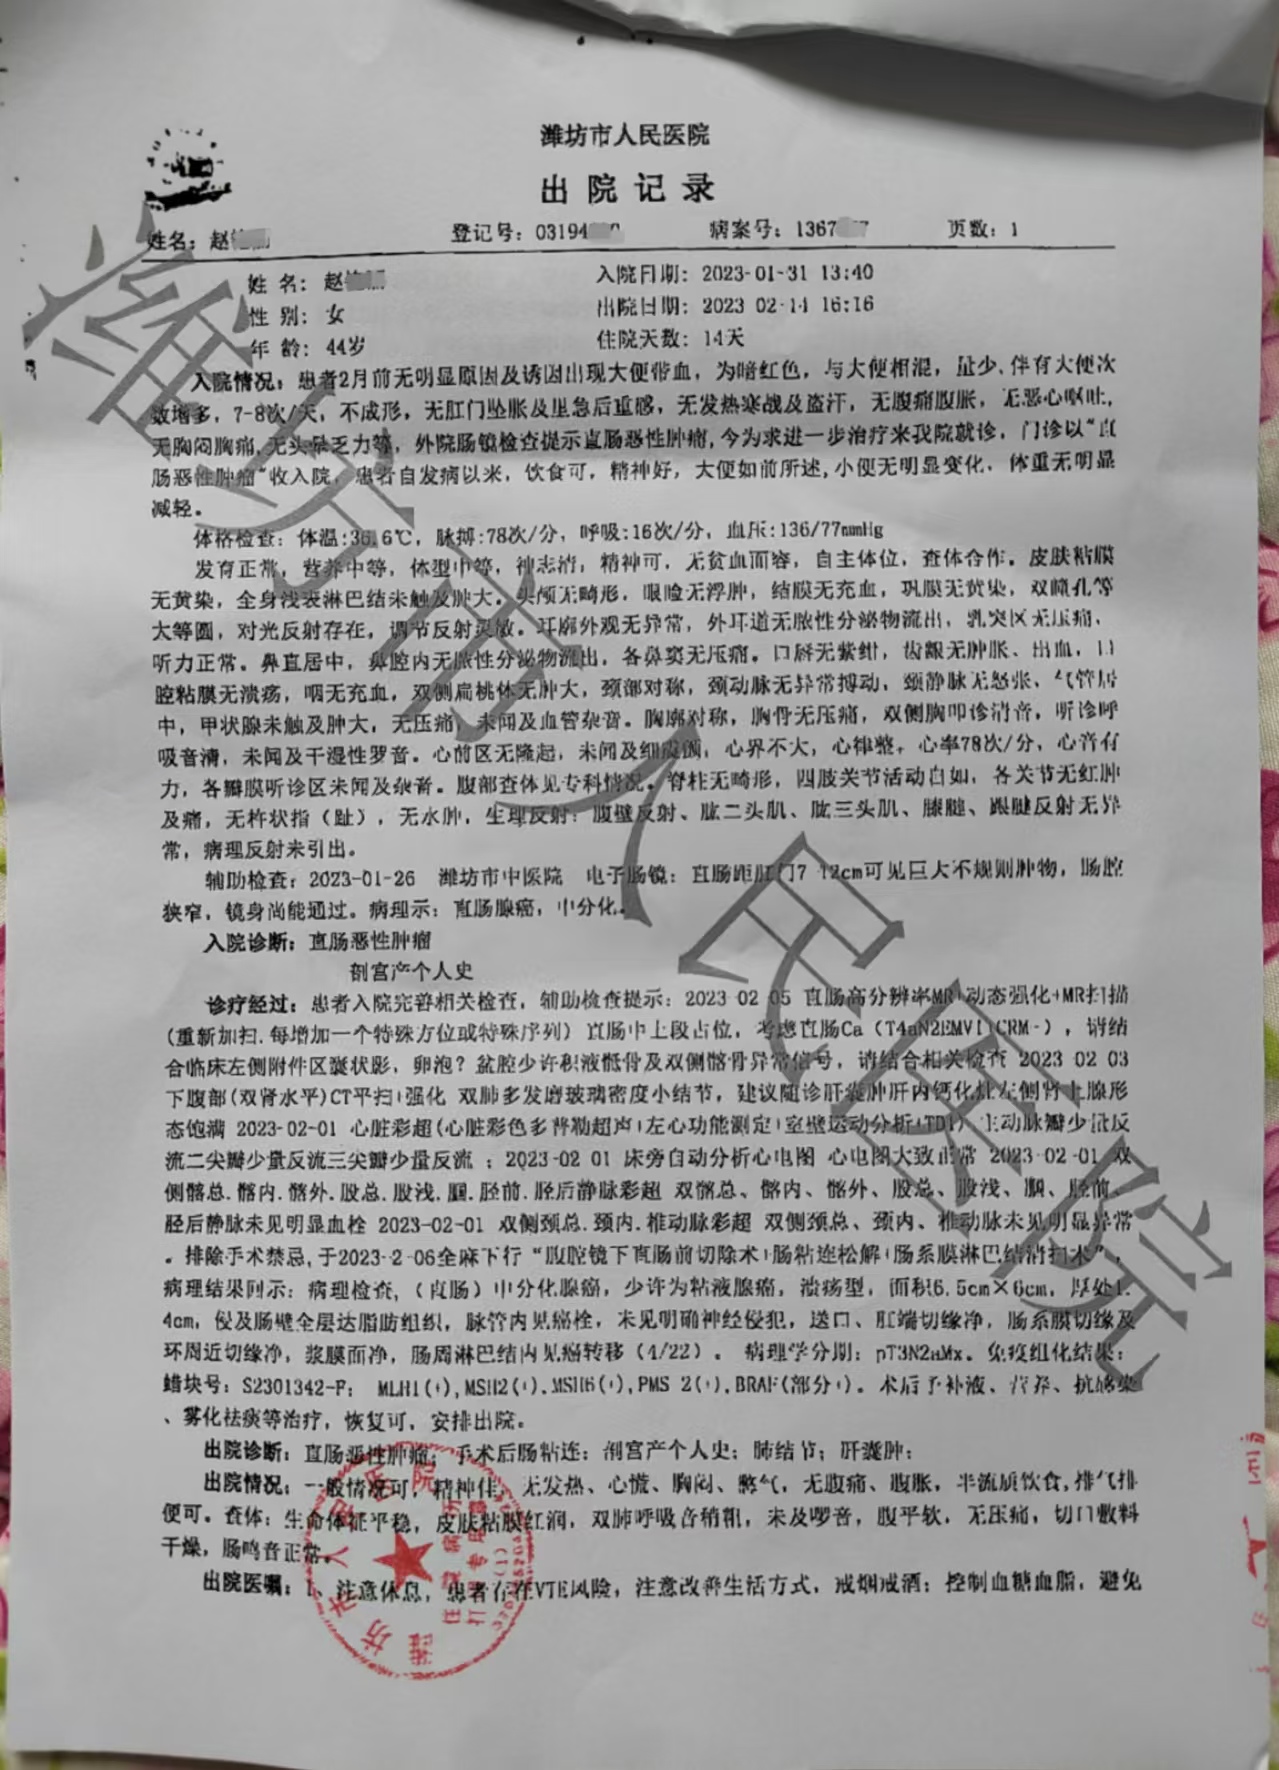 潍坊市人民医院
出院记录
姓名：赵 登记号：03194 病案号：1367 7 页数：1
姓 名：赵 入院日期：2023-01-31 13:40
性 别：女 出院日期：2023 02-14 16:16
年 龄：44岁 住院天数：14天
入院情况：患者2月前无明显原因及诱因出现大便带血，为暗红色，与大便相混，量少，伴有大便次
数增多，7-8次/天，不成形，无肛门坠胀及里急后重感，无发热寒战及盗汗，无腹痛腹胀，无恶心呕吐，
无胸闷胸痛，无头晕乏力等，外院肠镜检查提示直肠恶性肿瘤，今为求进一步治疗来我院就诊，门诊以“直
肠恶性肿瘤”收入院，患者自发病以来，饮食可，精神好，大便如前所述，小便无明显变化，体重无明显
减轻。
体格检查：体温：36.6℃，脉搏：78次/分，呼吸：16次/分，血压：136/77mmHg
发育正常，营养中等，体型中等，神志清，精神可，无贫血面容，自主体位，查体合作。皮肤粘膜
无黄染，全身浅表淋巴结未触及肿大。头颅无畸形，眼睑无浮肿，结膜无充血，巩膜无黄染，双瞳孔等
大等圆，对光反射存在，调节反射灵敏。耳廓外观无异常，外耳道无脓性分泌物流出，乳突区无压痛，
听力正常。鼻直居中，鼻腔内无脓性分泌物流出，各鼻窦无压痛。口唇无紫绀，齿龈无肿胀、出血，口
腔粘膜无溃疡，咽无充血，双侧扁桃体无肿大，颈部对称，颈动脉无异常搏动，颈静脉无怒张，气管居
中，甲状腺未触及肿大，无压痛，未闻及血管杂音。胸廓对称，胸骨无压痛，双侧胸叩诊清音，听诊呼
吸音清，未闻及干湿性罗音。心前区无隆起，未闻及细震颤，心界不大，心律整，心率78次/分，心音有
力，各瓣膜听诊区未闻及杂音。腹部查体见专科情况。脊柱无畸形，四肢关节活动自如，各关节无红肿
及痛，无杵状指（趾），无水肿，生理反射：腹壁反射、肱二头肌、肱三头肌、膝腱、跟腱反射无异
常，病理反射未引出。
辅助检查：2023-01-26 潍坊市中医院 电子肠镜：直肠距肛门7 12cm可见巨大不规则肿物，肠腔
狭窄，镜身尚能通过。病理示：直肠腺癌，中分化。
入院诊断：直肠恶性肿瘤
剖宫产个人史
诊疗经过：患者入院完善相关检查，辅助检查提示：2023 02 05 直肠高分辨率MR+动态强化+MR扫描
(重新加扫.每增加一个特殊方位或特殊序列) 直肠中上段占位，考虑直肠Ca（T4aN2EMVI CRM-），请结
合临床左侧附件区囊状影，卵泡？盆腔少许积液骶骨及双侧髂骨异常信号，请结合相关检查 2023 02 03
下腹部(双肾水平)CT平扫+强化 双肺多发磨玻璃密度小结节，建议随诊肝囊肿肝内钙化灶左侧肾上腺形
态饱满 2023-02-01 心脏彩超(心脏彩色多普勒超声+左心功能测定+室壁运动分析+TDI) 主动脉瓣少量反
流二尖瓣少量反流三尖瓣少量反流 ；2023-02 01 床旁自动分析心电图 心电图大致正常 2023-02-01 双
侧髂总.髂内.髂外.股总.股浅.腘.胫前.胫后静脉彩超 双髂总、髂内、髂外、股总、股浅、腘、胫前、
胫后静脉未见明显血栓 2023-02-01 双侧颈总.颈内.椎动脉彩超 双侧颈总、颈内、椎动脉未见明显异常
。排除手术禁忌，于2023-2-06全麻下行“腹腔镜下直肠前切除术+肠粘连松解+肠系膜淋巴结清扫术”，
病理结果回示：病理检查，（直肠）中分化腺癌，少许为粘液腺癌，溃疡型，面积6.5cm×6cm，厚处1.
4cm，侵及肠壁全层达脂肪组织，脉管内见癌栓，未见明确神经侵犯，送口、肛端切缘净，肠系膜切缘及
环周近切缘净，浆膜面净，肠周淋巴结内见癌转移（4/22）。病理学分期：pT3N2aMx。免疫组化结果：
蜡块号：S2301342-F；MLH1(+),MSH2(+).MSH6(+),PMS 2(+).BRAF(部分+)。术后予补液、营养、抗感染
、雾化祛痰等治疗，恢复可，安排出院。
出院诊断：直肠恶性肿瘤；手术后肠粘连；剖宫产个人史；肺结节；肝囊肿；
出院情况：一般情况可，精神佳，无发热、心慌、胸闷、憋气，无腹痛、腹胀，半流质饮食，排气排
便可。查体：生命体征平稳，皮肤粘膜红润，双肺呼吸音稍粗，未及啰音，腹平软，无压痛，切口敷料
干燥，肠鸣音正常。
出院医嘱：1、注意休息，患者存在VTE风险，注意改善生活方式，戒烟戒酒；控制血糖血脂，避免
潍坊市人民医院